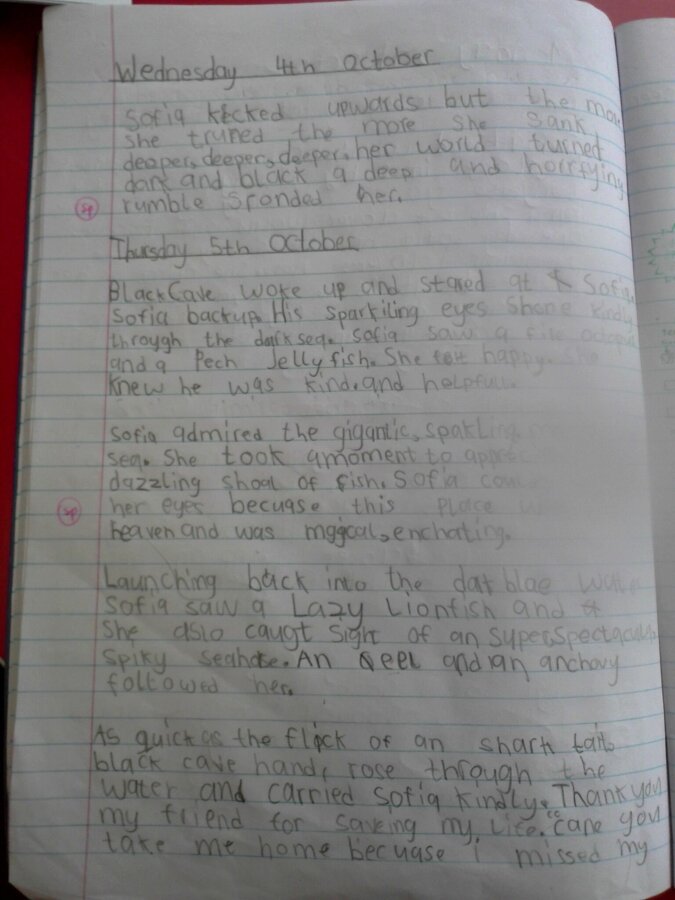 Wednesday 4th October
Sofia kicked upwards but the mor
she truned the more she sank
deaper, deeper, deeper. her world turned
dark and black a deep and horrfying
sp
rumble sronded her.
Thursday 5th October
Black Cave woke up and stared at Sofia
Sofia backup. His sparkiling eyes Shone kindly
through the dark sea. Sofia saw a octopu
and a Pech Jelly fish. She felt happy. She
knew he was kind. and helpful.
Sofia admired the gigantic, sparkling
sea. She took a moment to apprec
dazzling shoal of fish. Sofia cou
sp
her eyes becuase this place w
heaven and was magcal, enchating.
Launching back into the dar blae water
Sofia saw a Lazy Lionfish and
She aslo caugt Sight of an Super, Spectacula
Spiky seahote. An eel and an anchovy
followed her.
As quick as the flick of an shark tail,
black cave hand, rose through the
water and carried Sofia kindly. Thank you
my friend for saving my life. "cane you
take me home becuase i missed my